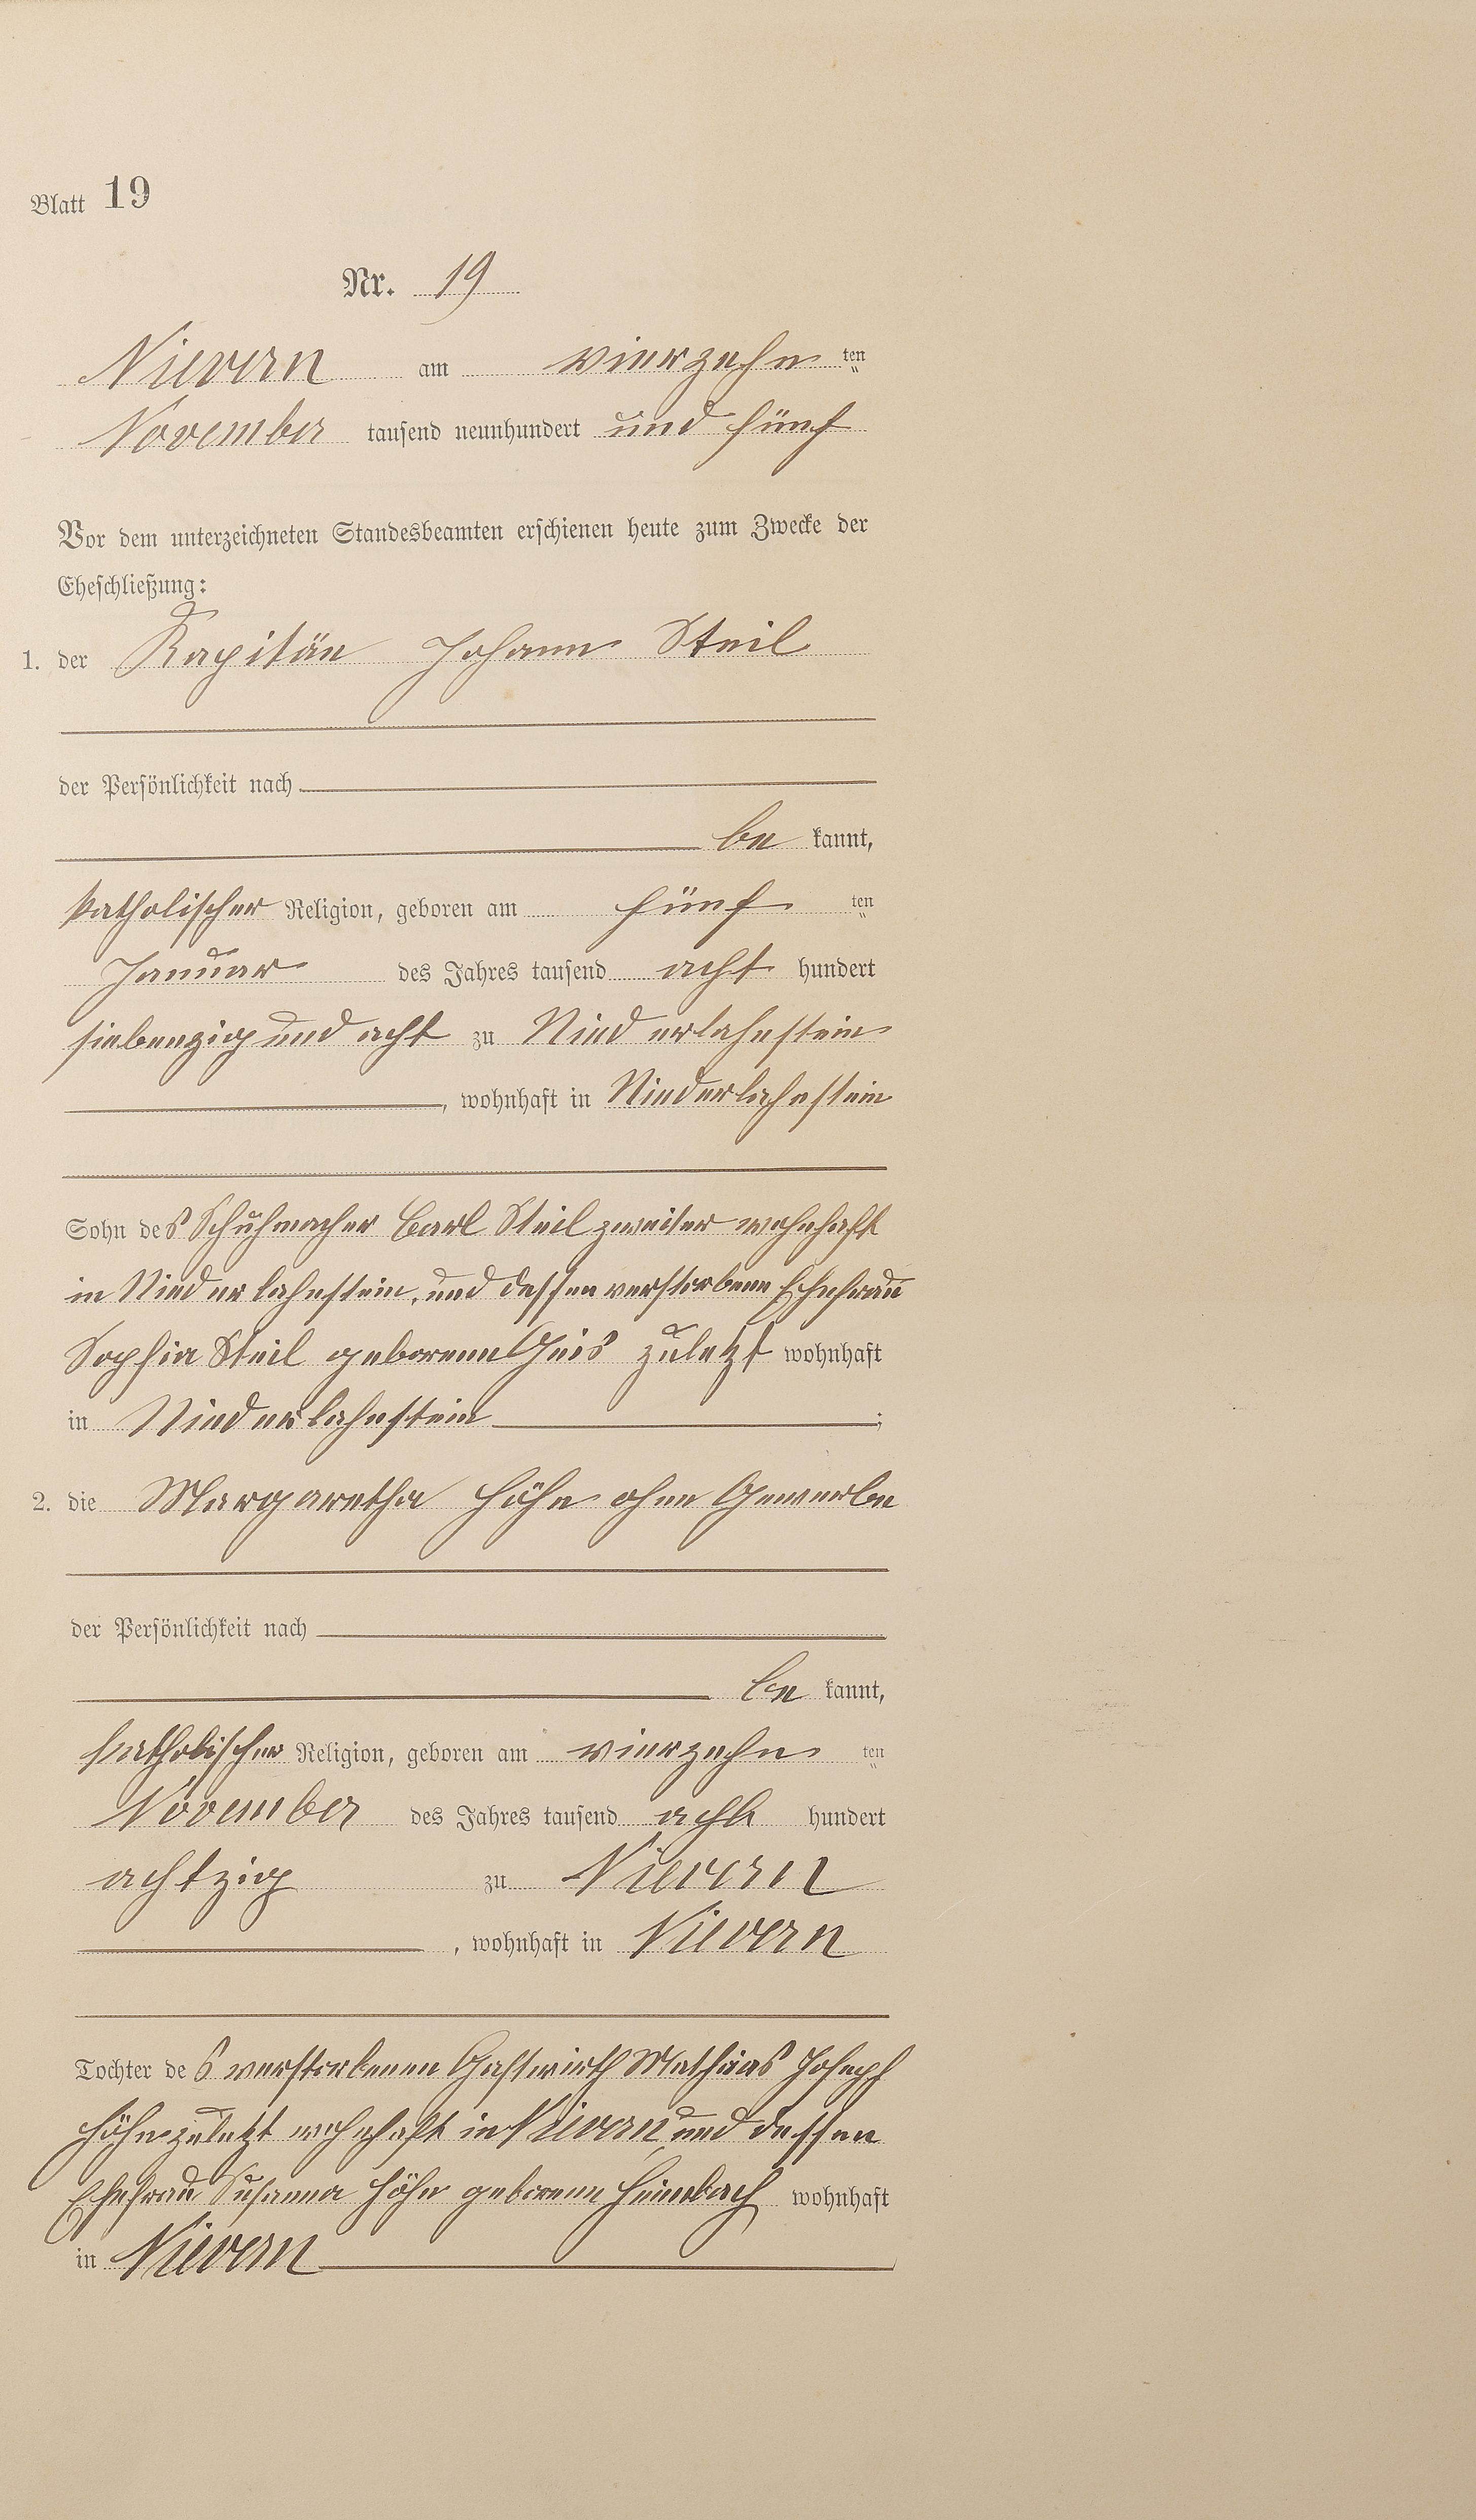 Blatt 19
Nr. 19
Nievern am vierzehn ten
November tausend neunhundert und fünf
Vor dem unterzeichneten Standesbeamten erschienen heute zum Zwecke der
Eheschließung:
1. der Kapitän Johann Steil
der Persönlichkeit nach
be kannt,
katholischer Religion, geboren am fünf ten
Januar des Jahres tausend acht hundert
siebenzig und acht zu Niederlahnstein
, wohnhaft in Niederlahnstein
Sohn des Schuhmacher Carl Steil zweiter wohnhaft
in Niederlahnstein, und dessen verstorbene Ehefrau
Sophia Steil geborene Geis zuletzt wohnhaft
in Niederlahnstein ;
2. die Margaretha Höhn ohne Gewerbe
der Persönlichkeit nach
be kannt,
katholischer Religion, geboren am vierzehn ten
November des Jahres tausend acht hundert
achtzig zu Nievern
, wohnhaft in Nievern
Tochter des verstorbenen Gastwirth Mathias Joseph
Höhn zuletzt wohnhaft in Nievern, und dessen
Ehefrau Susanna Höhn geborene Heimbach wohnhaft
in Nievern